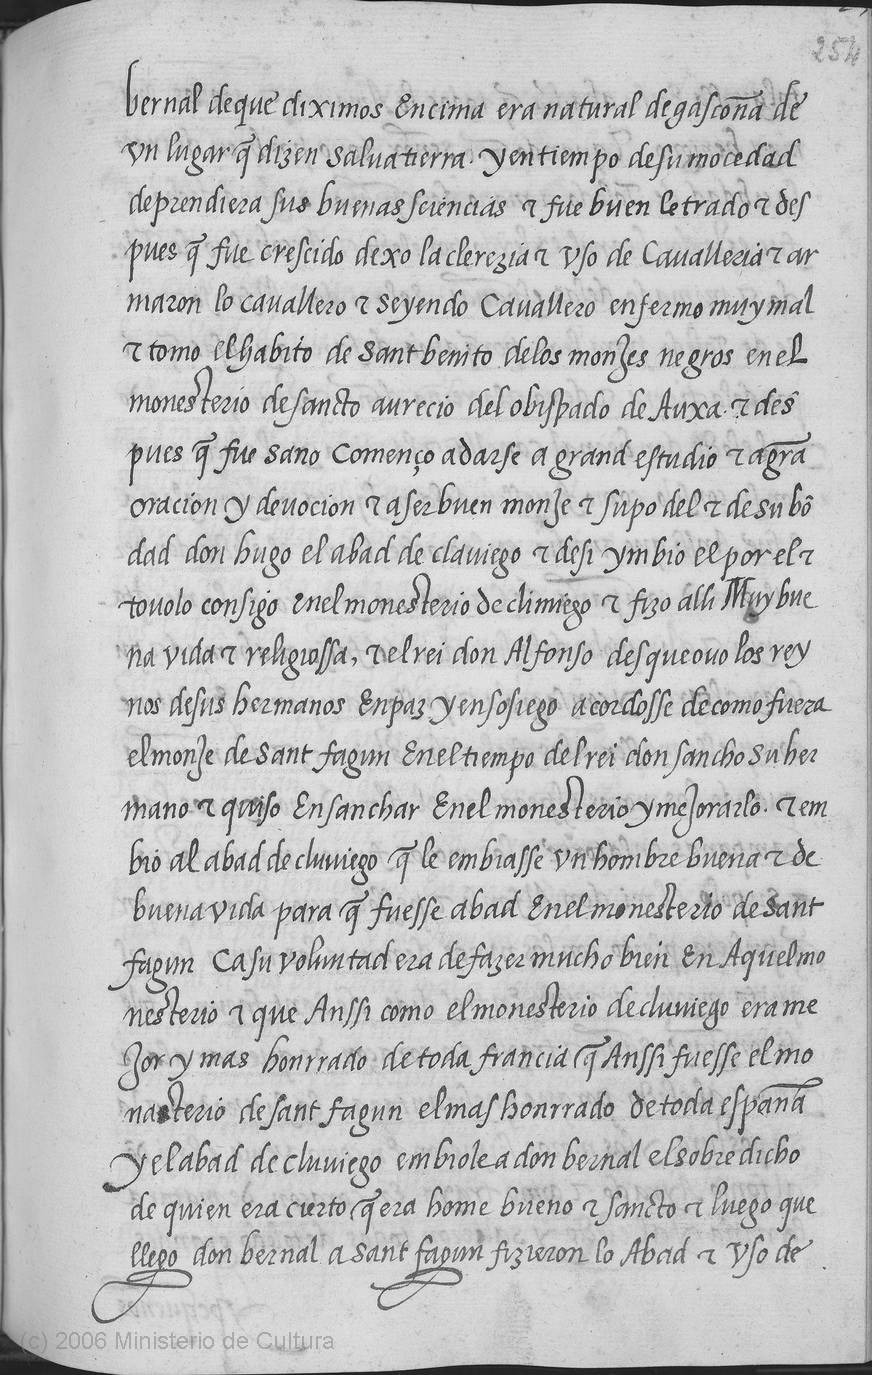 254
bernal de que diximos Encima era natural de gascoña de
vn lugar q̃ dizen salua tierra. y en tiempo de su mocedad
deprendiera sus buenas sciencias τ fue buen letrado τ des
pues q̃ fue crescido dexo la clerezia τ vso de Cavalleria τ ar
maron lo cavallero τ seyendo Cavallero enfermo muy mal
τ tomo el habito de sant benito delos monjes negros en el
monesterio de sancto aurecio del obispado de Auxa. τ des
pues q̃ fue sano Començo a darse a grand estudio τ a grã
oracion y devocion τ a ser buen monje τ supo del τ de su bõ
dad don hugo el abad de cluuiego τ desi ymbio el por el τ
touolo consigo enel monesterio de climiego τ fizo alli Muy bue
na vida τ religiossa, τ el rei don Alfonso desque ouo los rey
nos de sus hermanos En paz y en sosiego acordosse de como fuera
el monje de sant fagun En el tiempo del rei don sancho su her
mano τ quiso Ensanchar Enel monesterio y mejorarlo. τ em
bio al abad de cluuiego q̃ le embiasse vn hombre buena τ de
buena vida para q̃ fuesse abad Enel monesterio de sant
fagun Ca su voluntad era de fazer mucho bien En Aquel mo
nesterio τ que Anssi como el monesterio de cluuiego era me
jor y mas honrrado de toda francia q̃ Anssi fuesse el mo
nasterio de sant fagun el mas honrrado de toda españa
y el abad de cluuiego embiole a don bernal el sobre dicho
de quien era cierto q̃ era home bueno τ sancto τ luego que
llego don bernal a sant fagun fizieron lo Abad τ vso de
(c) 2006 Ministerio de Cultura